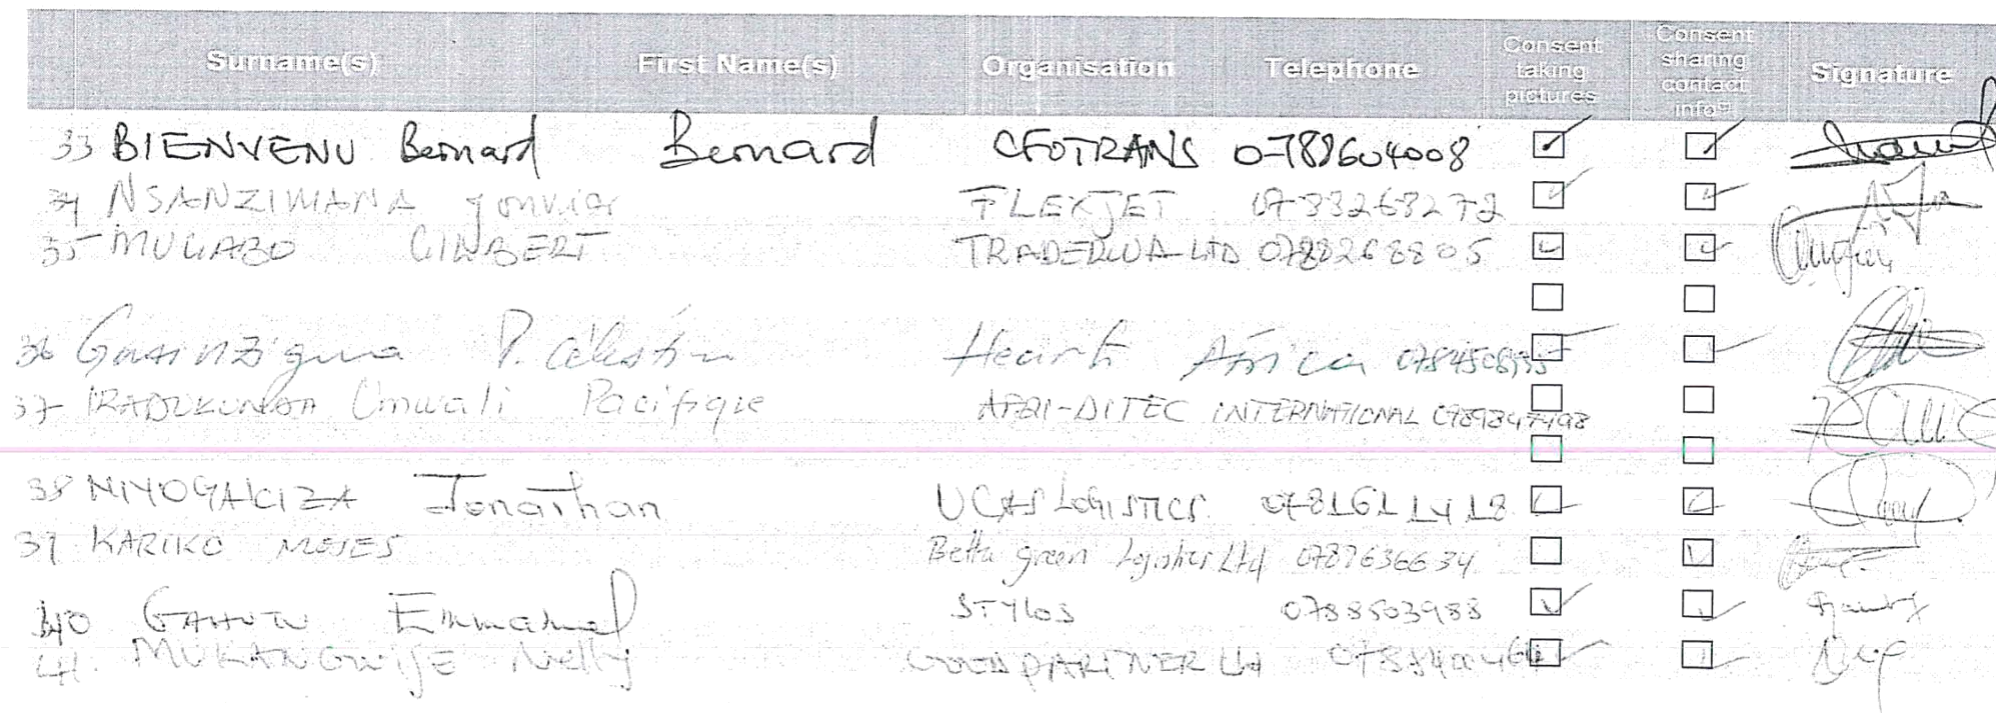 Surname(s) First Name(s) Organisation Telephone Consent taking pictures Consent sharing contact info Signature
33 BIENVENU Bernard Bernard CFOTRANS 0788604008
34 NSANZIMANA Janvier FLEXJET 0733268272
35 MUGABO GILBERT TRADERWA LTD 0788268805
36 P. Célestin Heart Africa
37 IRADUKUNDA Umwali Pacifique AFRI-DITEC INTERNATIONAL
38 Jonathan UCAS LOGISTICS 0781611418
39 KARIKO MOSES Betta green Logistics Ltd 0787636634
40 GAHUTU Emmanuel STYLOS 0788503988
41. MUKANGWIJE Nelly PARTNER Ltd